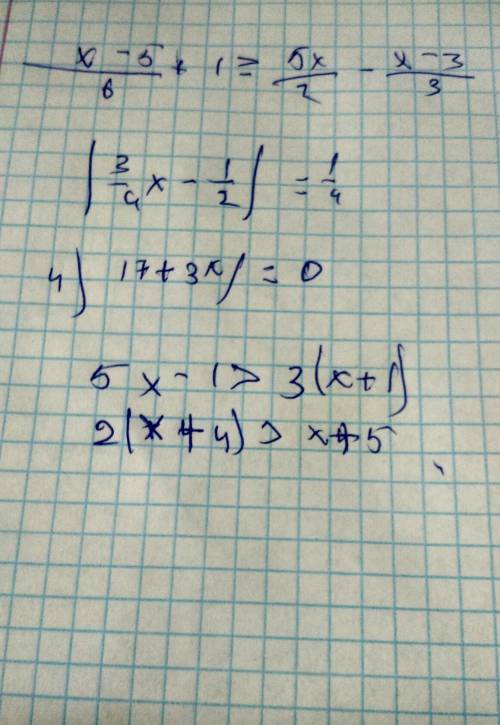 (x - 5)/6 + 1 ≥ 5x/2 - (x - 3)/3
|3/4 x - 1/2| = 1/4
4) |7 + 3x| = 0
5x - 1 > 3(x + 1)
2(x + 4) > x + 5